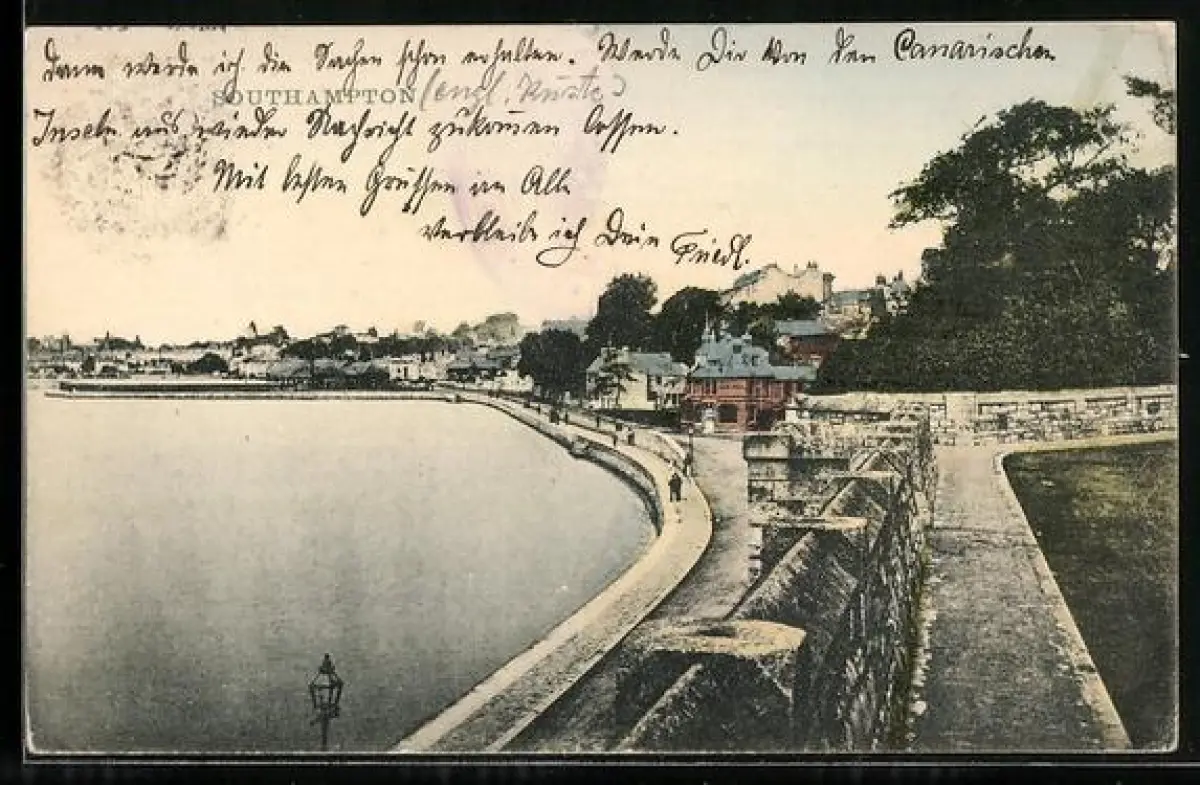 dann werde ich die Sachen schon erhalten. Werde Dir von den Canarischen
SOUTHAMPTON (engl. Küste)
Inseln aus wieder Nachricht zukommen lassen.
Mit besten Grüssen an Alle
verbleibe ich Dein Friedl.